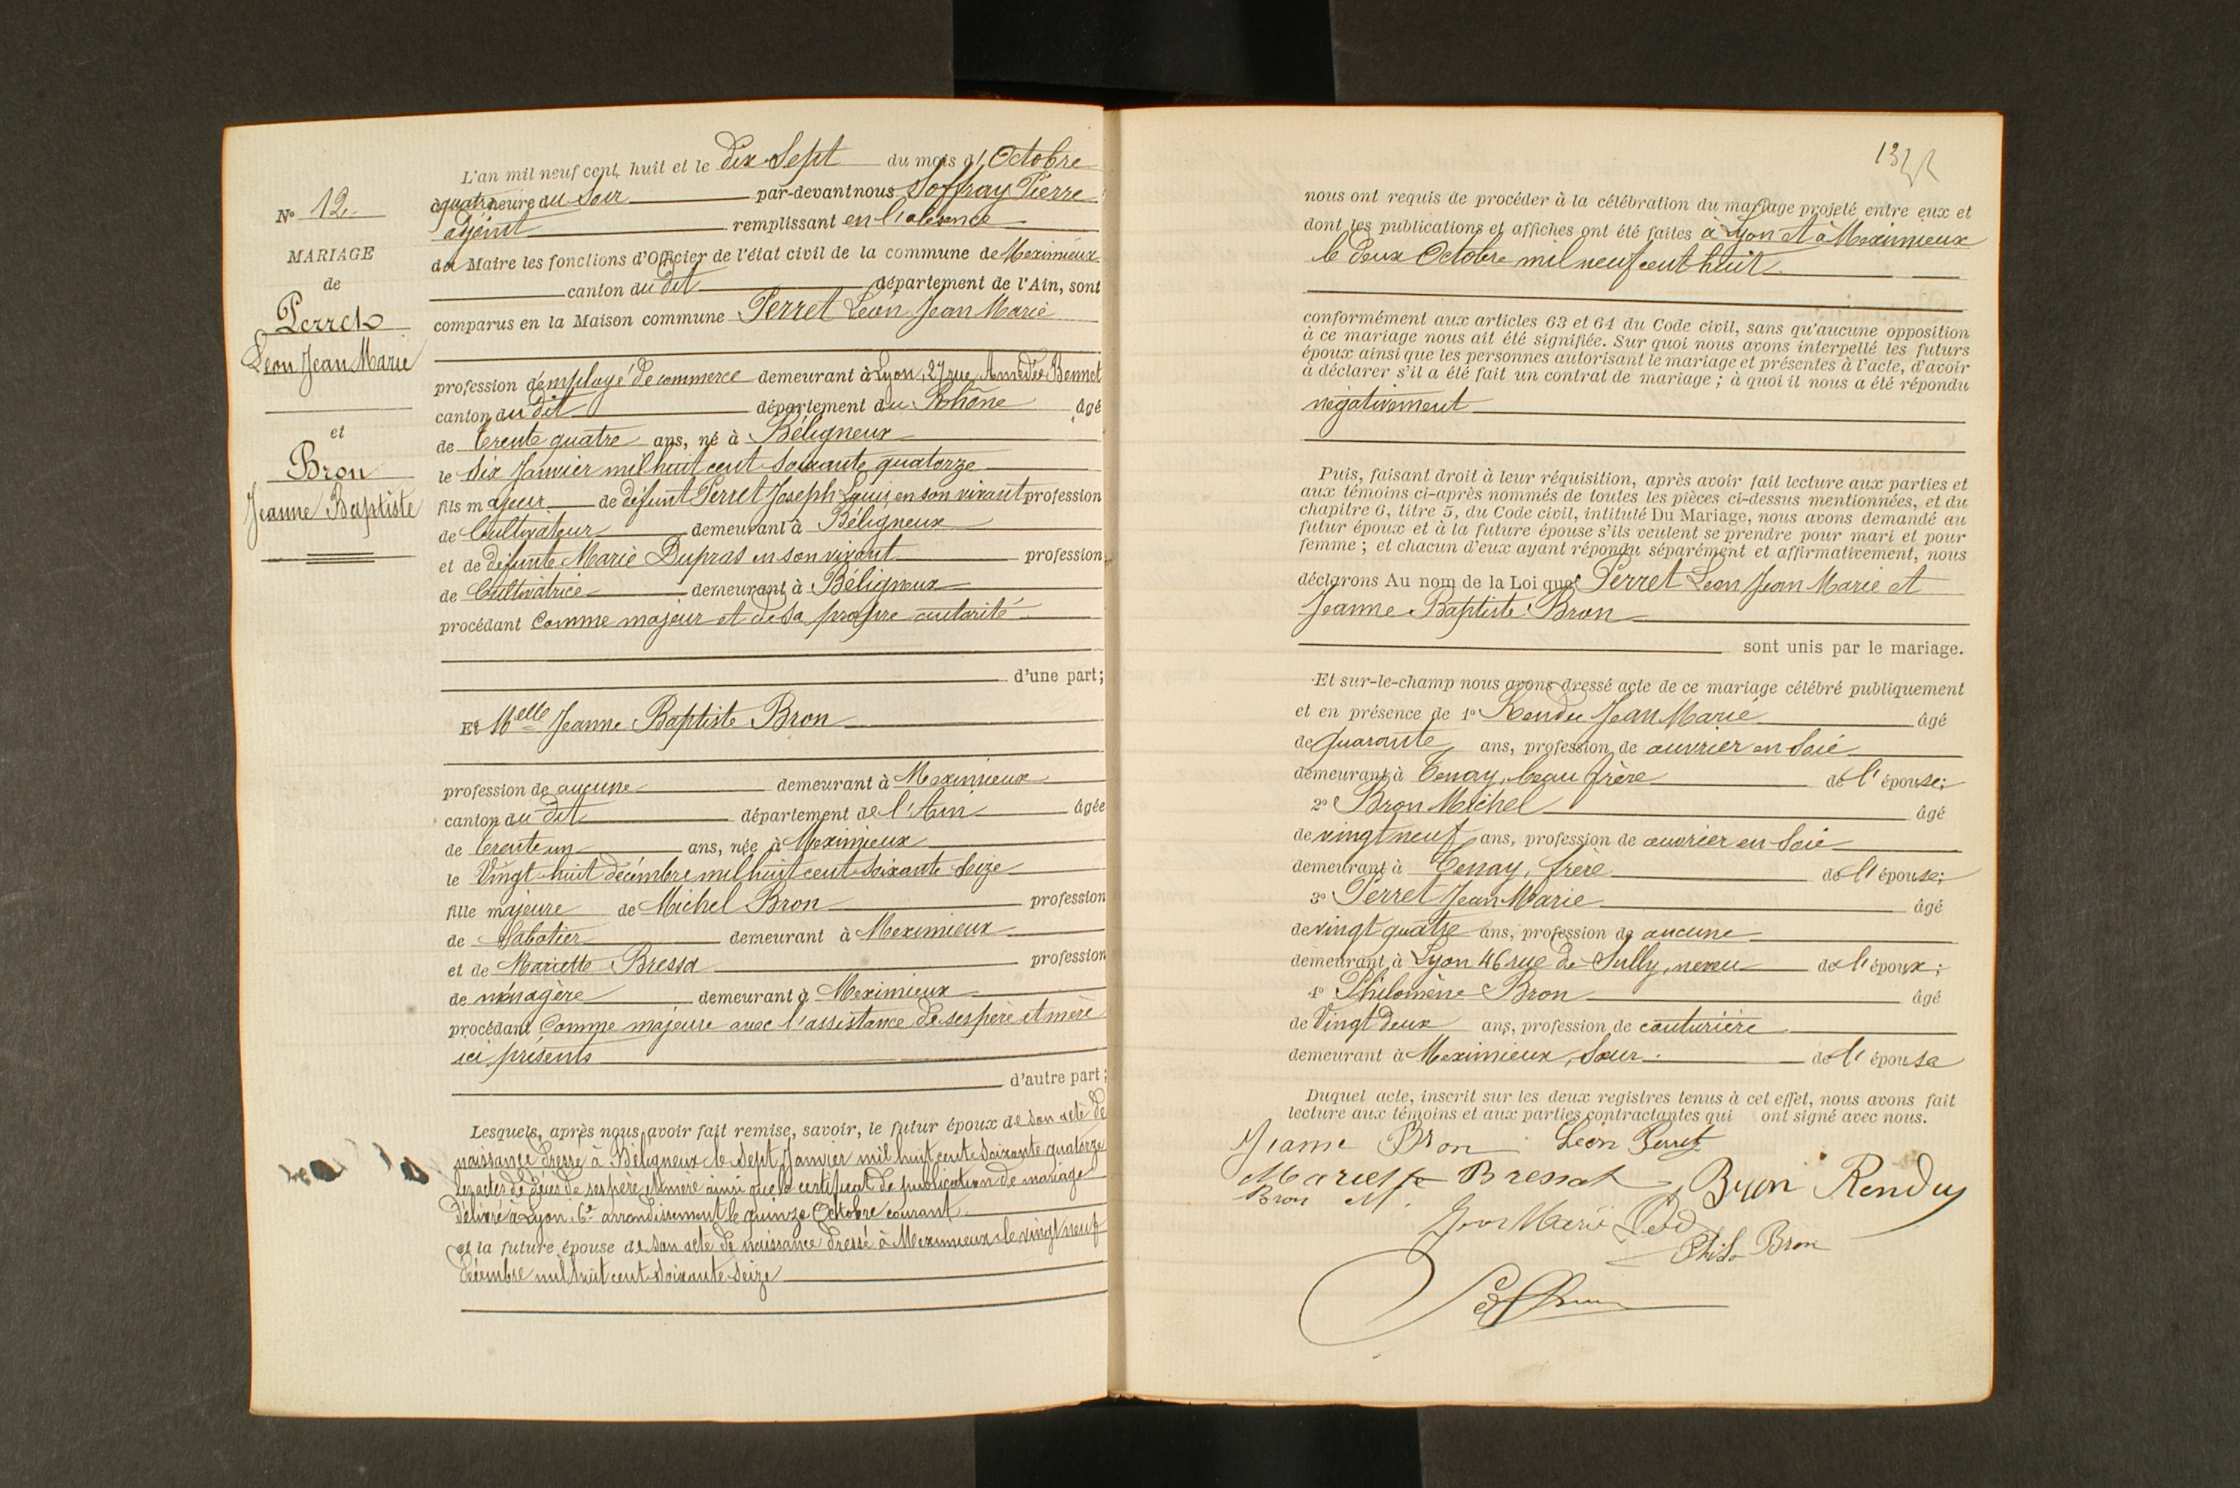 N° 12
MARIAGE
de
Perret
Léon Jean Marie
et
Bron
Jeanne Baptiste
L'an mil neuf cent huit et le dix Sept du mois d'Octobre
à quatre heure du Soir par-devant nous Soffray Pierre
adjoint remplissant en l'absence
du Maire les fonctions d'Officier de l'état civil de la commune de Meximieux
canton du dit département de l'Ain, sont
comparus en la Maison commune Perret Léon Jean Marie
profession d'employé de commerce demeurant à Lyon, 27 rue Amédée Bonnet
canton du dit département du Rhône âgé
de trente quatre ans, né à Béligneux
le Six Janvier mil huit cent soixante quatorze
fils majeur de défunt Perret Joseph Louis en son vivant profession
de Cultivateur demeurant à Béligneux
et de défunte Marie Dupras en son vivant profession
de Cultivatrice demeurant à Béligneux
procédant comme majeur et de sa propre autorité
d'une part;
Et Melle Jeanne Baptiste Bron
profession de aucune demeurant à Meximieux
canton du dit département de l'Ain âgée
de trente un ans, née à Meximieux
le Vingt huit décembre mil huit cent soixante seize
fille majeure de Michel Bron profession
de Sabotier demeurant à Meximieux
et de Mariette Bressa profession
de ménagère demeurant à Meximieux
procédant comme majeure avec l'assistance de ses père et mère
ici présents
d'autre part;
Lesquels, après nous avoir fait remise, savoir, le futur époux de son acte de
naissance dressé à Béligneux le Sept Janvier mil huit cent soixante quatorze
les actes de décès de ses père et mère ainsi que le certificat de publication de mariage
délivré à Lyon 6e arrondissement le quinze Octobre courant
et la future épouse de son acte de naissance dressé à Meximieux le vingt neuf
décembre mil huit cent soixante seize
nous ont requis de procéder à la célébration du mariage projeté entre eux et
dont les publications et affiches ont été faites à Lyon et à Meximieux
le deux Octobre mil neuf cent huit
conformément aux articles 63 et 64 du Code civil, sans qu'aucune opposition
à ce mariage nous ait été signifiée. Sur quoi nous avons interpellé les futurs
époux ainsi que les personnes autorisant le mariage et présentes à l'acte, d'avoir
à déclarer s'il a été fait un contrat de mariage ; à quoi il nous a été répondu
négativement
Puis, faisant droit à leur réquisition, après avoir fait lecture aux parties et
aux témoins ci-après nommés de toutes les pièces ci-dessus mentionnées, et du
chapitre 6, titre 5, du Code civil, intitulé Du Mariage, nous avons demandé au
futur époux et à la future épouse s'ils veulent se prendre pour mari et pour
femme ; et chacun d'eux ayant répondu séparément et affirmativement, nous
déclarons Au nom de la Loi que Perret Léon Jean Marie et
Jeanne Baptiste Bron
sont unis par le mariage.
Et sur-le-champ nous avons dressé acte de ce mariage célébré publiquement
et en présence de 1° Rendu Jean Marie âgé
de quarante ans, profession de ouvrier en Soie
demeurant à Tenay, beau frère de l'épouse;
2° Bron Michel âgé
de vingt neuf ans, profession de ouvrier en Soie
demeurant à Tenay, frère de l'épouse;
3° Perret Jean Marie âgé
de vingt quatre ans, profession de aucune
demeurant à Lyon 46 rue de Sully, neveu de l'époux;
4° Philomène Bron âgé
de Vingt deux ans, profession de couturière
demeurant à Meximieux, Sœur de l'épouse
Duquel acte, inscrit sur les deux registres tenus à cet effet, nous avons fait
lecture aux témoins et aux parties contractantes qui ont signé avec nous.
Jeanne Bron Léon Perret
Mariette Bressat Bron Rendu
Bron M.
Jean Marie
Philo Bron